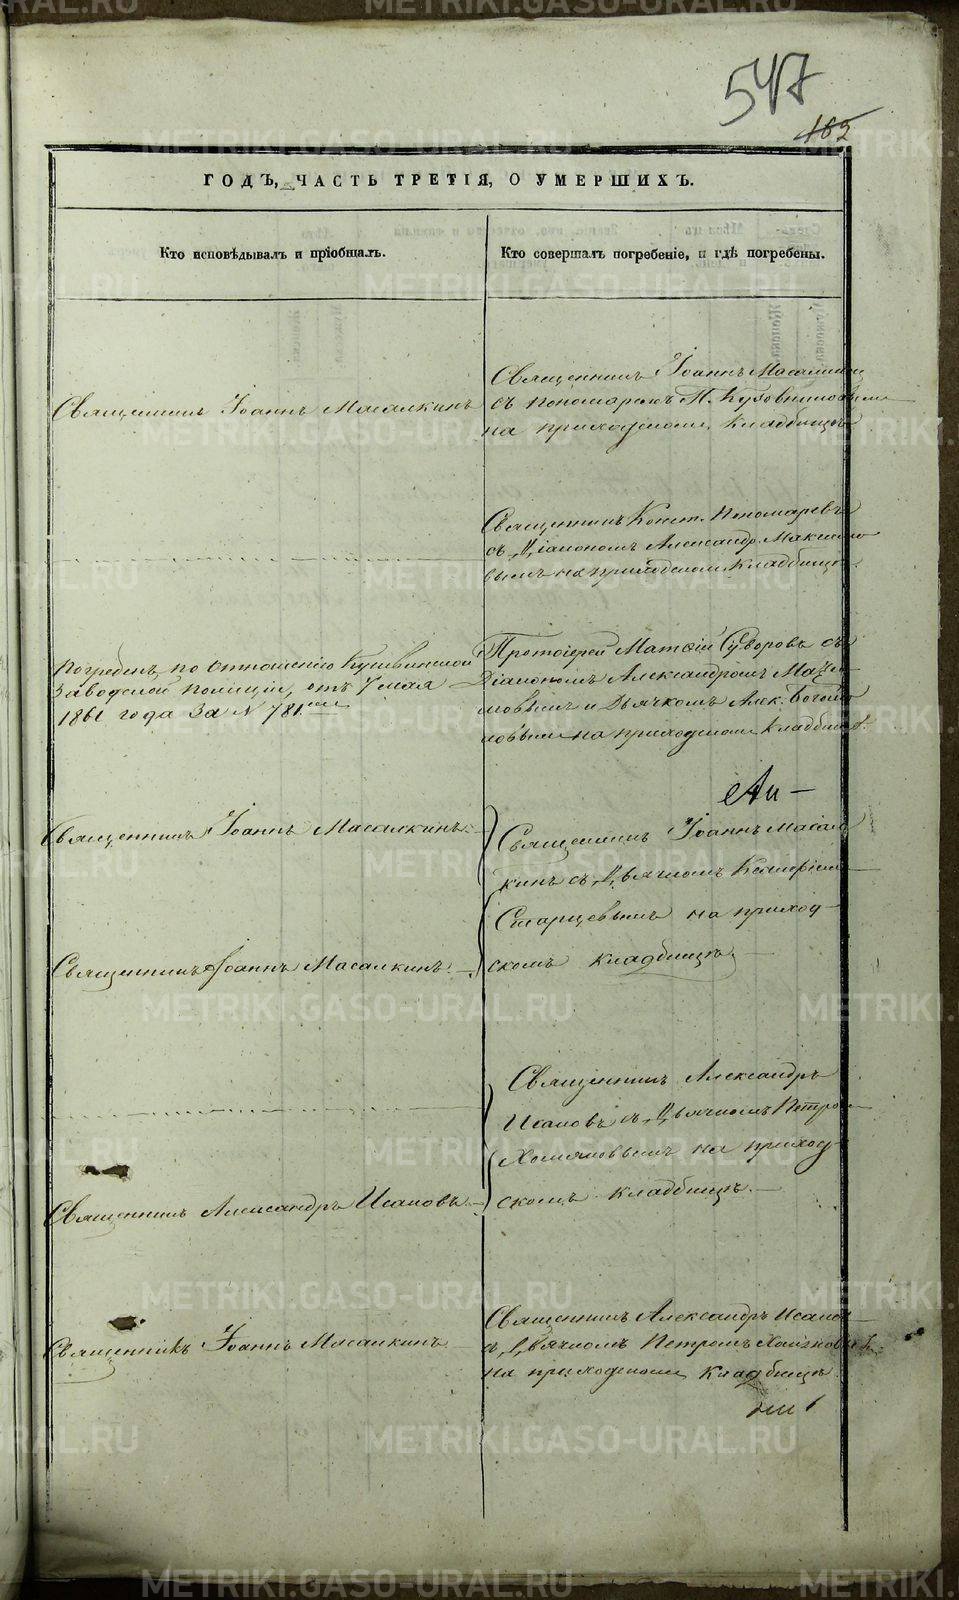 547
162
ГОДЪ, ЧАСТЬ ТРЕТІЯ, О УМЕРШИХЪ.
Кто исповѣдывалъ и пріобщалъ.
Кто совершалъ погребеніе, и гдѣ погребены.
Священникъ Іоаннъ Масалкинъ
Священникъ Іоаннъ Масалкинъ
съ пономаремъ П.
на приходскомъ кладбищѣ
Священникъ Конст. Пономаревъ
съ Діакономъ Александр. Максимо
вымъ на приходскомъ кладбищѣ.
Погребенъ по отношенію Кушвинской
Заводской полиціи, отъ 7 мая
1861 года за N 781.
Протоіерей Матѳій Суворовъ съ
Діакономъ Александромъ Макси
мовымъ и Дьячкомъ Алек.
на приходскомъ кладбищѣ.
Священникъ Іоаннъ Масалкинъ.
Священникъ Іоаннъ Масалкинъ.
Священникъ Іоаннъ Масал
кинъ съ Дьячкомъ
Старцевымъ на приход
скомъ кладбищѣ.
Священникъ Александръ Исаковъ.
Священникъ Александръ
Исаковъ съ Дьячкомъ Петро
Хомяковымъ на приход
скомъ кладбищѣ.
Священникъ Іоаннъ Масалкинъ
Священникъ Александръ Исаков
съ Дьячкомъ Петромъ Хомяковымъ
на приходскомъ кладбищѣ.
METRIKI.GASO-URAL.RU